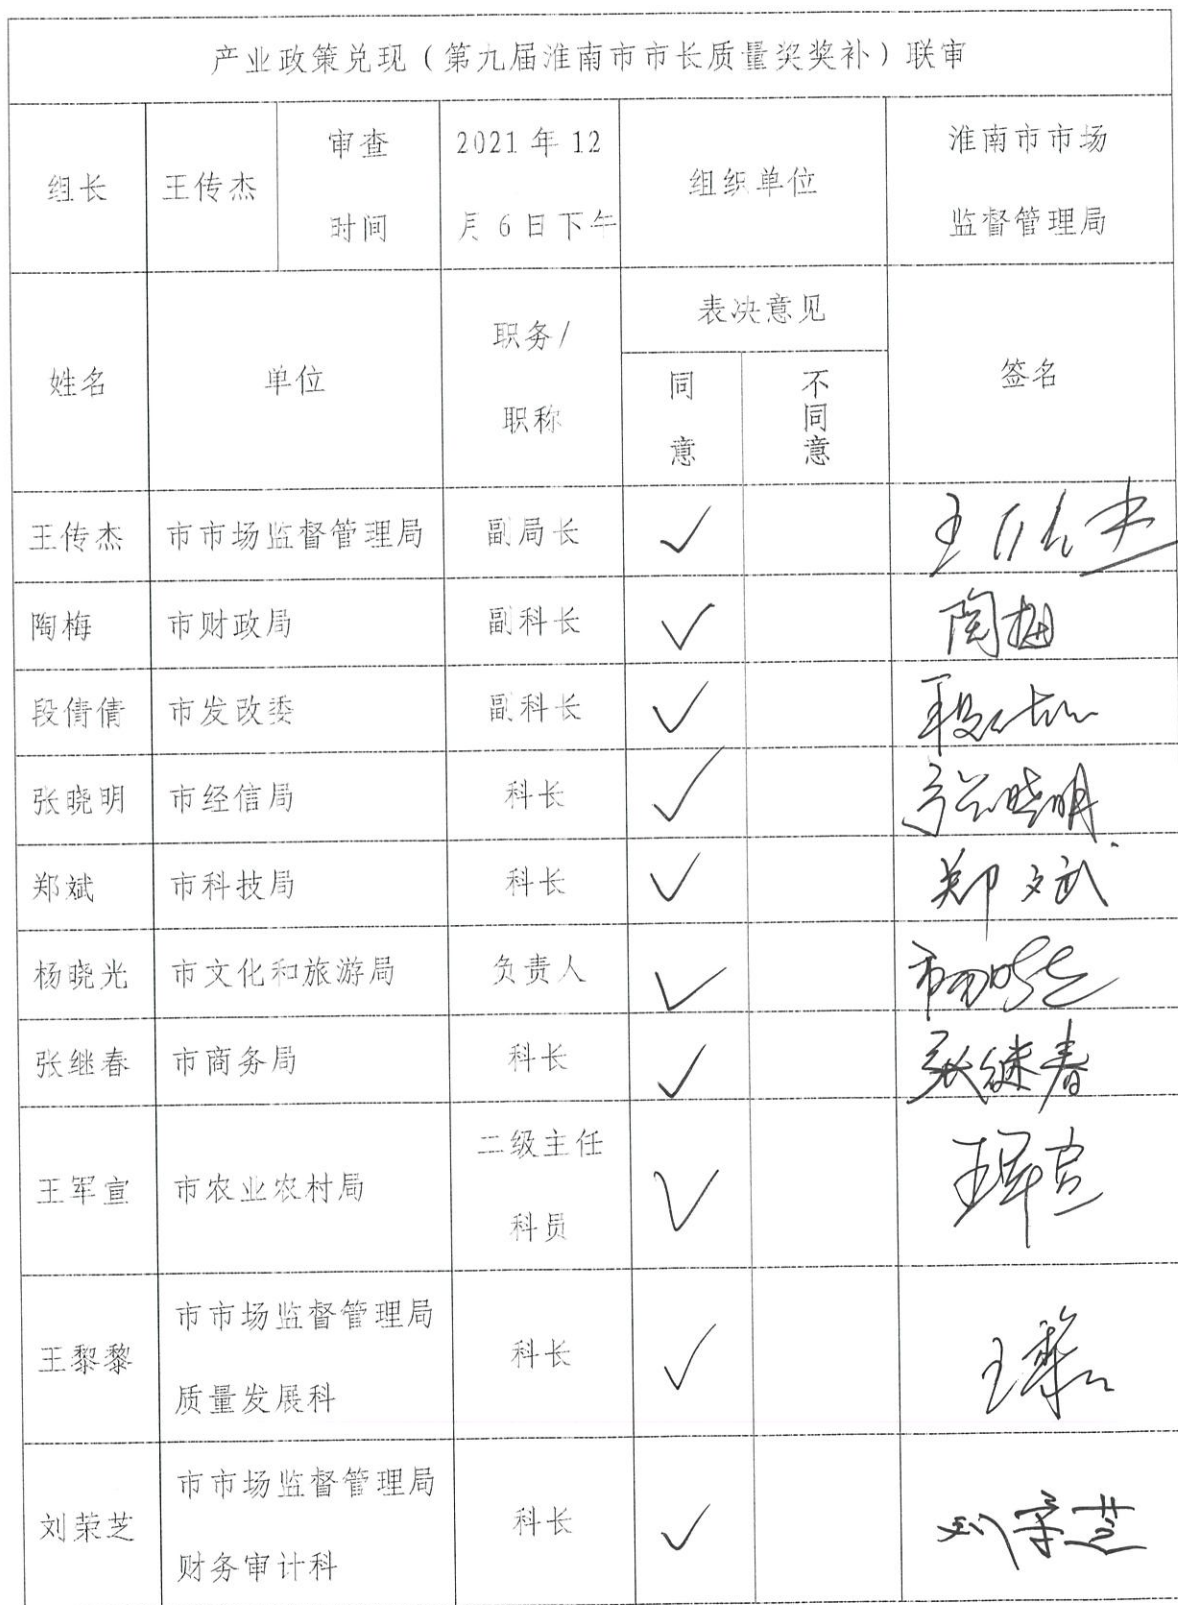 产业政策兑现（第九届淮南市市长质量奖奖补）联审
组长 王传杰 审查时间 2021年12月6日下午 组织单位 淮南市市场监督管理局
姓名 单位 职务/职称 表决意见 签名
同意 不同意
王传杰 市市场监督管理局 副局长 ✓ 王传杰
陶梅 市财政局 副科长 ✓ 陶梅
段倩倩 市发改委 副科长 ✓ 段倩倩
张晓明 市经信局 科长 ✓ 张晓明
郑斌 市科技局 科长 ✓ 郑斌
杨晓光 市文化和旅游局 负责人 ✓ 杨晓光
张继春 市商务局 科长 ✓ 张继春
王军宣 市农业农村局 二级主任科员 ✓ 王军宣
王黎黎 市市场监督管理局质量发展科 科长 ✓ 王黎黎
刘荣芝 市市场监督管理局财务审计科 科长 ✓ 刘荣芝